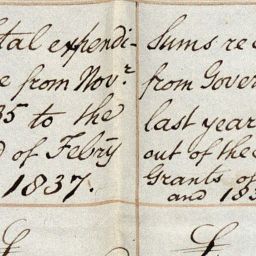 tal expendi-
e from Novr
35 to the
d of Febry
1837.
Sums re
from Gover
last year
out of the
Grants of
and 183
£
£